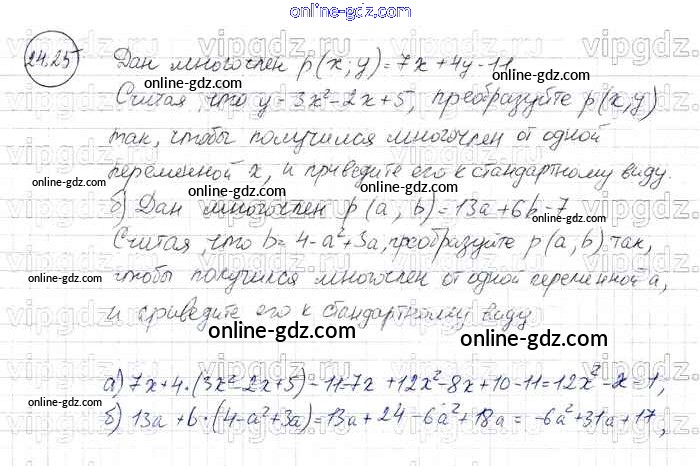 online-gdz.com
24.25 Дан многочлен p(x;y)=7x+4y-11
online-gdz.com
Считая, что y=3x²-2x+5, преобразуйте p(x;y)
так, чтобы получился многочлен от одной
переменной x, и приведите его к стандартному виду.
online-gdz.com
online-gdz.com
б) Дан многочлен p(a,b)=13a+6b-7
online-gdz.com
Считая, что b=4-a²+3a, преобразуйте p(a,b) так,
online-gdz.com
чтобы получился многочлен от одной переменной a,
и приведите его к стандартному виду
online-gdz.com
online-gdz.com
а) 7x+4·(3x²-2x+5)-11=7x+12x²-8x+10-11=12x²-x=1,
б) 13a+6·(4-a²+3a)=13a+24-6a²+18a=-6a²+31a+17,
online-gdz.com